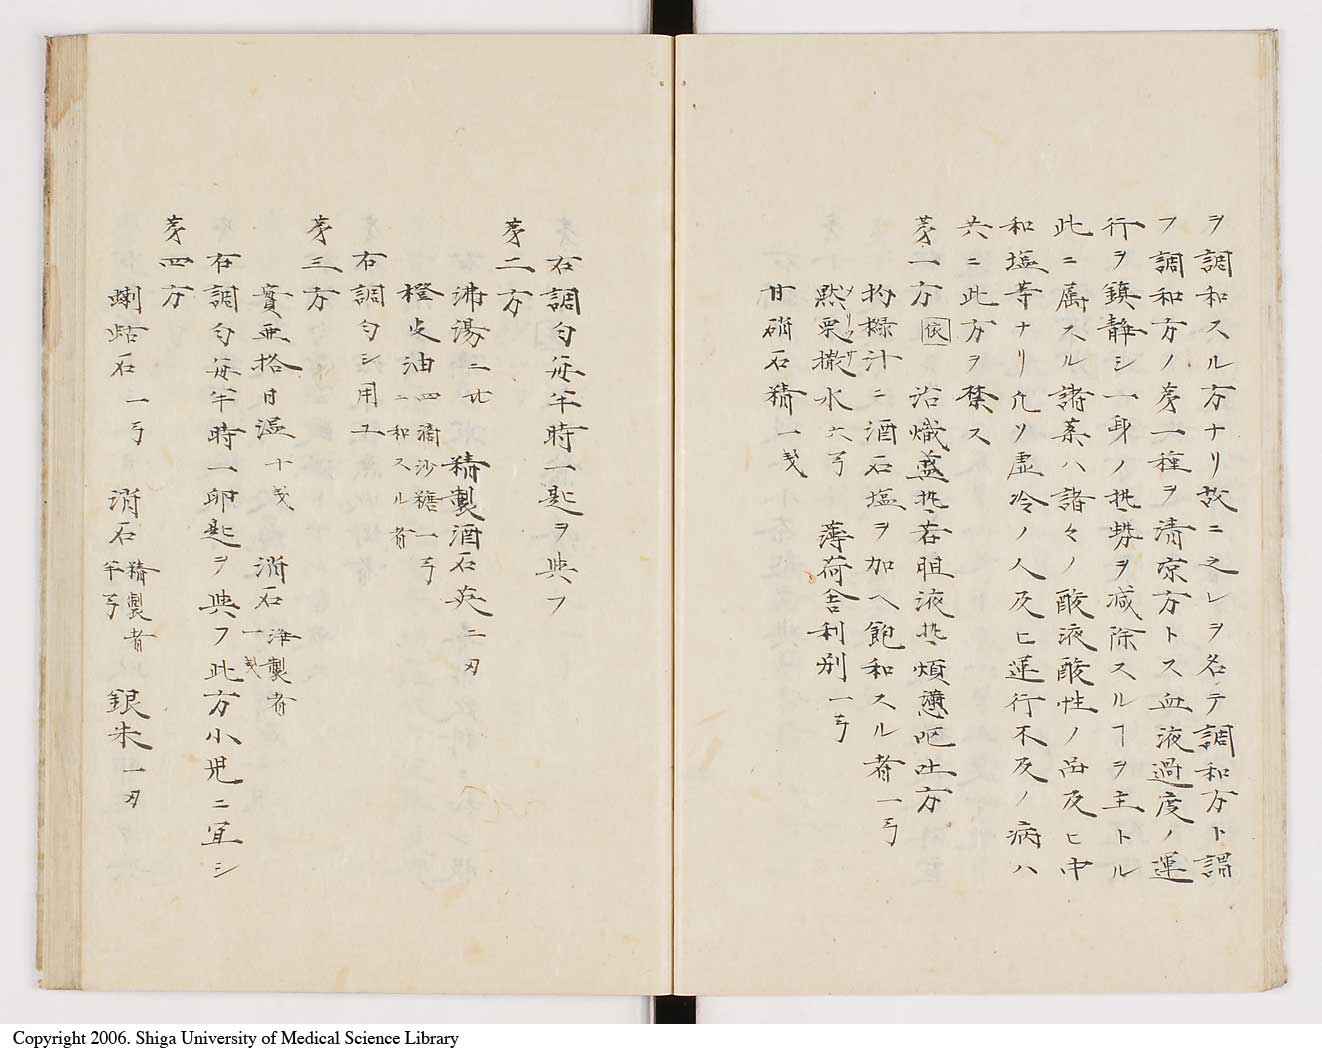 ヲ調和スル方ナリ故ニ之レヲ名テ調和方ト謂
フ調和方ノ第一種ヲ清凉方トス血液過度ノ運
行ヲ鎮静シ一身ノ热勢ヲ減除スルヿヲ主トル
此ニ属スル諸薬ハ諸々ノ酸液酸性ノ塩及ヒ中
和塩等ナリ凡ソ虚冷ノ人及ヒ運行不及ノ病ハ
共ニ此方ヲ禁ス
第一方 依 治熾盛热若胆液热煩懣呕吐方
枸櫞汁ニ酒石塩ヲ加ヘ飽和スル者一弓
黙栗撒水六弓 薄荷舎利別一弓
甘硝石精一戔
右調匀每半時一匙ヲ與フ
第二方
沸湯二比 精製酒石英二刄
橙皮油四滴沙糖一弓ニ和スル者
右調匀シ用ユ
第三方
實亜拾日温十戔 消石浄製者一戔
右調匀每半時一卵匙ヲ與フ此方小児ニ宜シ
第四方
蝲蛄石一弓 消石精製者半弓 銀朱一刄
Copyright 2006. Shiga University of Medical Science Library